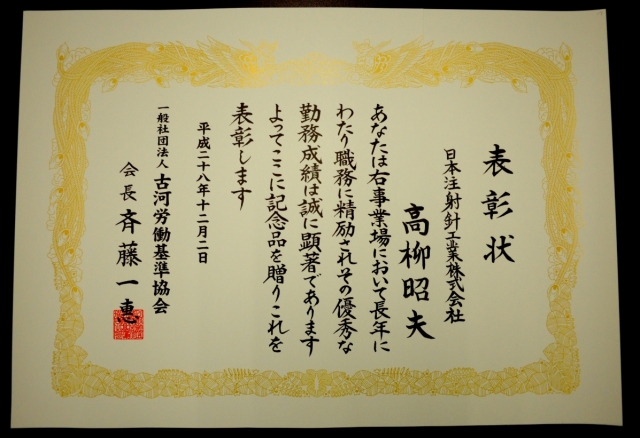 表彰状
日本注射針工業株式会社
高柳昭夫
あなたは右事業場において長年に
わたり職務に精励されその優秀な
勤務成績は誠に顕著であります
よってここに記念品を贈りこれを
表彰します
平成二十八年十二月二日
一般社団法人 古河労働基準協会
会長 斉藤一惠